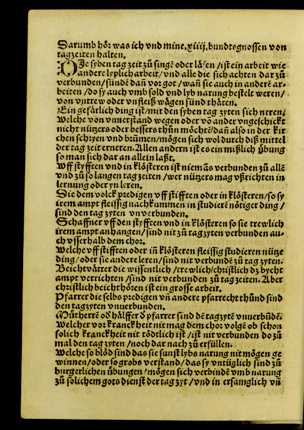 Darumb hör was ich vnd mine .xiiij. bundtgnossen von
tagzeiten halten.
Die syben tag zeit zů singē oder läsen / ist ein arbeit wie
andere leyplich arbeit / vnd alle die sich achten dar zů
verbunden / sündē dañ vor got / wañ sie auch in andere ar-
beiten / do sy auch vmb sold vnd lyb narung bestelt weren /
von vntrew oder vnfleiß wägen sünd thäten.
Ein gefärlich ding ist / mit den syben tag zyten sich neren /
Welche von vnuerstand wegen oder vō ander vngeschickt
nicht nützers oder bessers thůn möchtē / daň also in der kit
chen schryen vnd bůmen / mögen sich wol durch diß mittel
der tag zeit erneren. Allen andern ist es ein mißlich übung
so man sich dar an allein laßt.
Vff styfften vnd in klöstern ist niemās verbunden zů alle
vnd zů so langen tag zeiten / wer nützers mag vßrichten in
lernung oder yn leren.
Die dem volck predigen vff stifften oder in klöstern / so sy
irem ampt fleissig nachkummen in studierē nötiger ding /
sind den tag zyten vnuerbunden.
Schaffner vff den styfften vnd in klöstern so sie trewlich
irem ampt anhangen / sind nit zů tagzyten verbunden au-
ch vsserhalb dem chor.
Welche vff stifften oder in klösteren fleissig studieren nütze
ding / oder sie andere leren / sind nit verbundē zů tag zyten.
Beichtvätter die wissentlich / trewlich / christlich dz bycht
ampt verrichten / sind nit verbunden zů tag zeiten. Aber
christlich beichthören ist ein grosse arbeit.
Pfarrer die selbs predigen vñ andere pfarrecht thůnd sind
den tagzyten vnuerbunden.
Mütherrē od hälffer d pfarrer sind dē tagzytē vnuerbūdē.
Welcher vor kranckheit nit mag dem chor volgē ob schon
solich kranckheit nit tödtlich ist / ist nit verbunden do zů
mal den tag zyten / noch dar nach zů erfüllen.
Welche so blöd sind das sie sunst lyb narung nit mögen ge
winnen / oder so grobs verstand / das sy vntüglich sind zů
burgerlichen übungen / mögen sich verbindē vmb narung
zů solichem gots dienst der tag zyt / vnd in ersamglich vñ